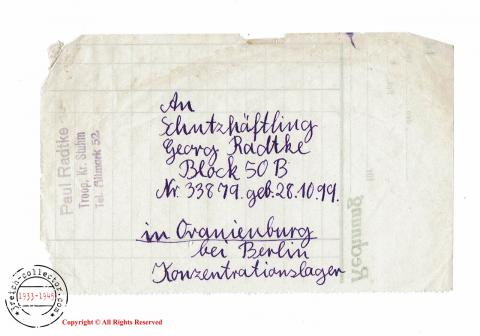 An
Schutzhäftling
Georg Radtke
Block 50 B
Nr. 33879. geb. 28.10.99.
in Oranienburg
bei Berlin
Konzentrationslager
Paul Radtke
Troop, Kr. Stuhm
Tel. Altmark 52
Rechnung
1933-1945
Copyright © All Rights Reserved